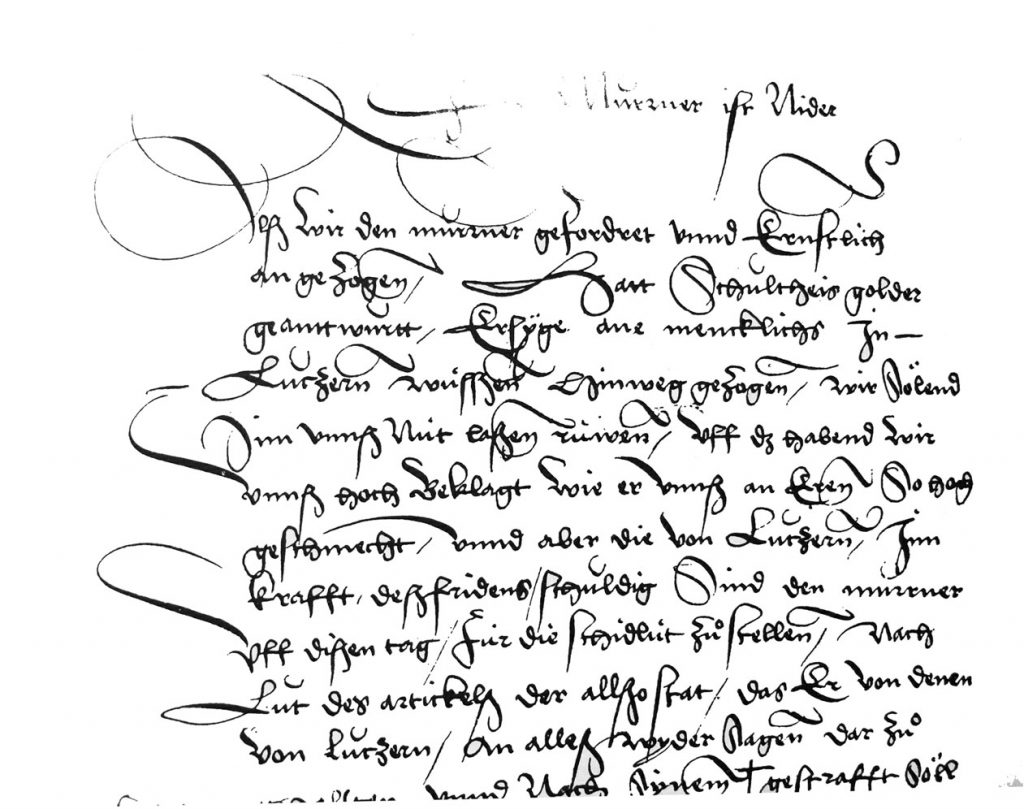 Murner ist Nider
Als Wir den murner gefordret unnd Ernstlich
an gezogen / Hatt Schultheis golder
geanttwurtt / Er syge ane mencklichs In
Lutzern wüssen Hinweg gezogen / wir sölend
Inn unnß Nüt laßen rüwen / Uff dz habend wir
unnß hoch Beklagt Wie er unnß an Eren So hoch
geschmecht / unnd aber die von Lutzern / Inn
krafft deß fridens / schuldig Sind den murner
Uff dißen tag / Für die schidlüt zů stellen / Nach
Lut des artickels der allso stat / das Er von denen
von Lutzern / An alles wyder sagen dar zů
unnd Nach Synem gestrafft söll